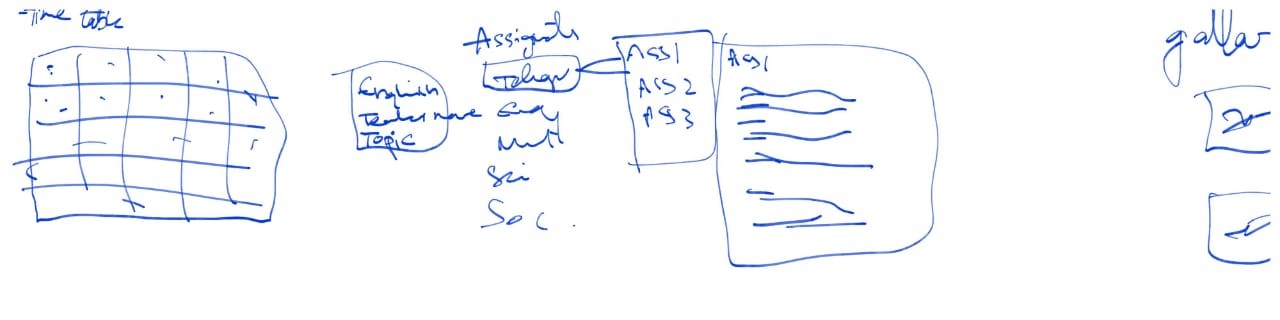 Time table
English
Teacher name
Topic
Assignments
Telugu
Eng
Math
Sci
Soc.
ASS1
ASS2
ASS3
ASS1